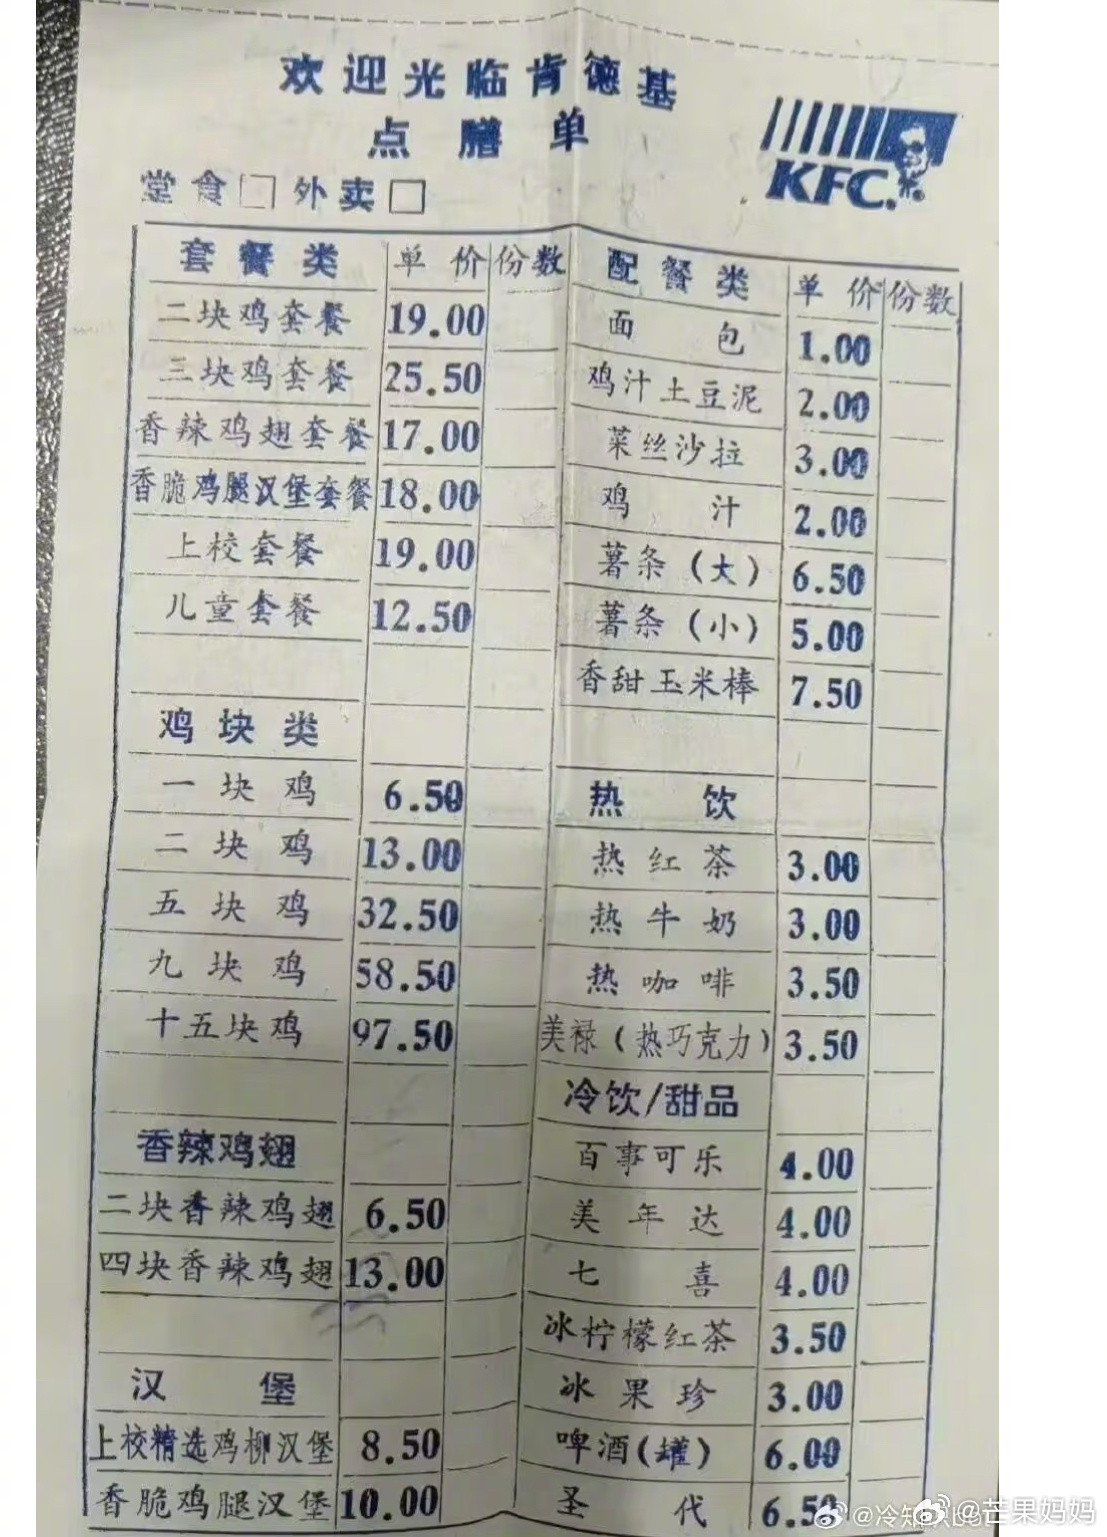 欢迎光临肯德基
点膳单
KFC
堂食□ 外卖□
套餐类 单价 份数
二块鸡套餐 19.00
三块鸡套餐 25.50
香辣鸡翅套餐 17.00
香脆鸡腿汉堡套餐 18.00
上校套餐 19.00
儿童套餐 12.50
鸡块类
一块鸡 6.50
二块鸡 13.00
五块鸡 32.50
九块鸡 58.50
十五块鸡 97.50
香辣鸡翅
二块香辣鸡翅 6.50
四块香辣鸡翅 13.00
汉堡
上校精选鸡柳汉堡 8.50
香脆鸡腿汉堡 10.00
配餐类 单价 份数
面包 1.00
鸡汁土豆泥 2.00
菜丝沙拉 3.00
鸡汁 2.00
薯条(大) 6.50
薯条(小) 5.00
香甜玉米棒 7.50
热饮
热红茶 3.00
热牛奶 3.00
热咖啡 3.50
美禄(热巧克力) 3.50
冷饮/甜品
百事可乐 4.00
美年达 4.00
七喜 4.00
冰柠檬红茶 3.50
冰果珍 3.00
啤酒(罐) 6.00
圣代 6.50
@芒果妈妈